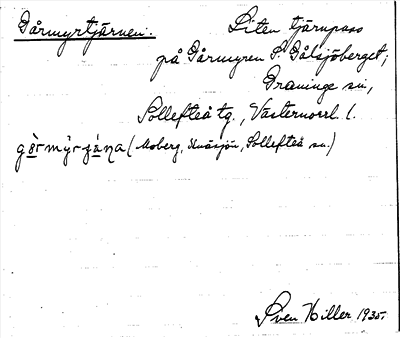 Gårmyrtjärnen. Liten tjärnpass
på Gårmyren S. Gålsjöberget,
Graninge sn,
Sollefteå tg., Västernorrl. l.
(Moberg, Knäsjön, Sollefteå sn.)
Sven Hiller 1935.